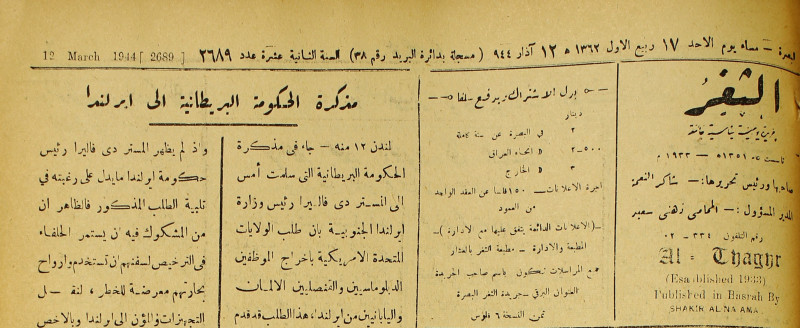 البصرة — مساء يوم الاحد ١٧ ربيع الاول ١٣٦٣ ه ١٢ آذار ٩٤٤ ( مسجلة بدائرة البريد رقم ٣٨ ) السنة الثانية عشرة عدد ٢٦٨٩ 12 March 1944 [ 2689 ]
الثغر
جريدة يومية سياسية
١٣٥١ ه — ١٩٣٣ م
صاحبها ورئيس تحريرها: — شاكر النعمة
المدير المسؤول: — المحامي زهني سعيد
رقم التلفون ٣٣٤ - ٠٢
Al - Thaghr
(Established 1933)
Published in Basrah By
SHAKIR AL NAAMA
بدل الاشتراك يدفع سلفا
دينار
٢ في البصرة عن سنة كاملة
٢-٥٠٠ » انحاء العراق
٣ » الخارج
اجرة الاعلانات — ١٥٠ فلسا عن العقد الواحد
من العمود
—( الاعلانات الدائمة يتفق عليها مع الادارة )—
المطبعة والادارة — مطبعة الثغر بالعشار
جميع المراسلات تكون باسم صاحب الجريدة
العنوان البرقي — جريدة الثغر البصرة
ثمن النسخة ٦ فلوس
مذكرة الحكومة البريطانية الى ايرلندا
لندن ١٢ منه — جاء في مذكرة
الحكومة البريطانية التي سلمت أمس
الى المستر دى فاليرا رئيس وزارة
ايرلندا الجنوبية بان طلب الولايات
المتحدة الامريكية باخراج الموظفين
الدبلوماسيين والقنصليين الالمان
واليابانيين من ايرلندا، هذا الطلب قد قدم
واذ لم يظهر المستر دى فاليرا رئيس
حكومة ايرلندا ما يدل على رغبته في
تلبية الطلب المذكور فالظاهر ان
من المشكوك فيه ان يستمر الحلفاء
في الترخيص لسفنهم ان تستخدم وارواح
بحارتهم معرضة للخطر، لنقـــل
التجهيزات والمؤن الى ايرلندا وبالاخص